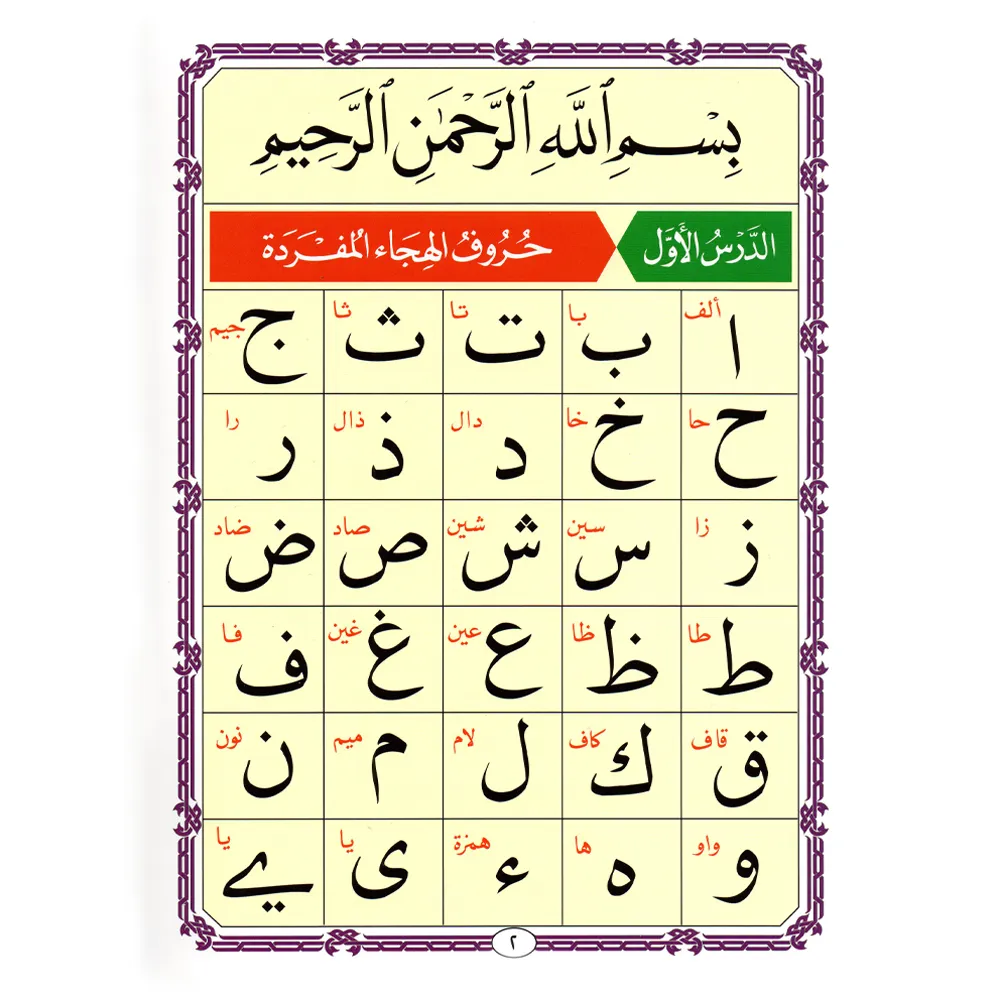 بِسْمِ ٱللَّهِ ٱلرَّحْمَٰنِ ٱلرَّحِيمِ
الدَّرْسُ الأَوَّل حُرُوفُ الهِجَاء المُفْرَدَة
ألف ا با ب تا ت ثا ث جيم ج
حا ح خا خ دال د ذال ذ را ر
زا ز سين س شين ش صاد ص ضاد ض
طا ط ظا ظ عين ع غين غ فا ف
قاف ق كاف ك لام ل ميم م نون ن
واو و ها ه همزة ء يا ى يا ے
٢